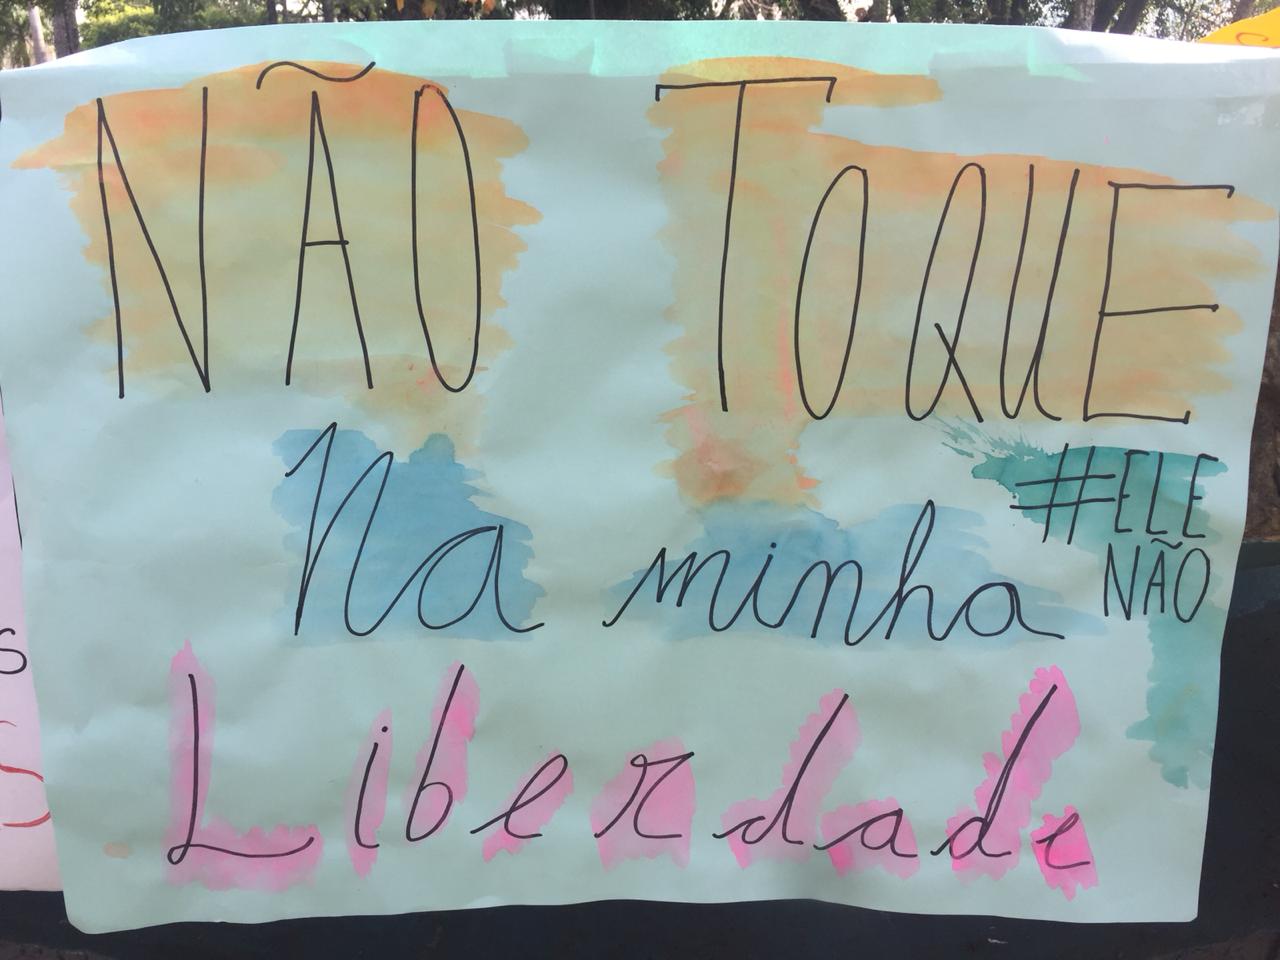 NÃO TOQUE
Na minha
#ELE
NÃO
Liberdade